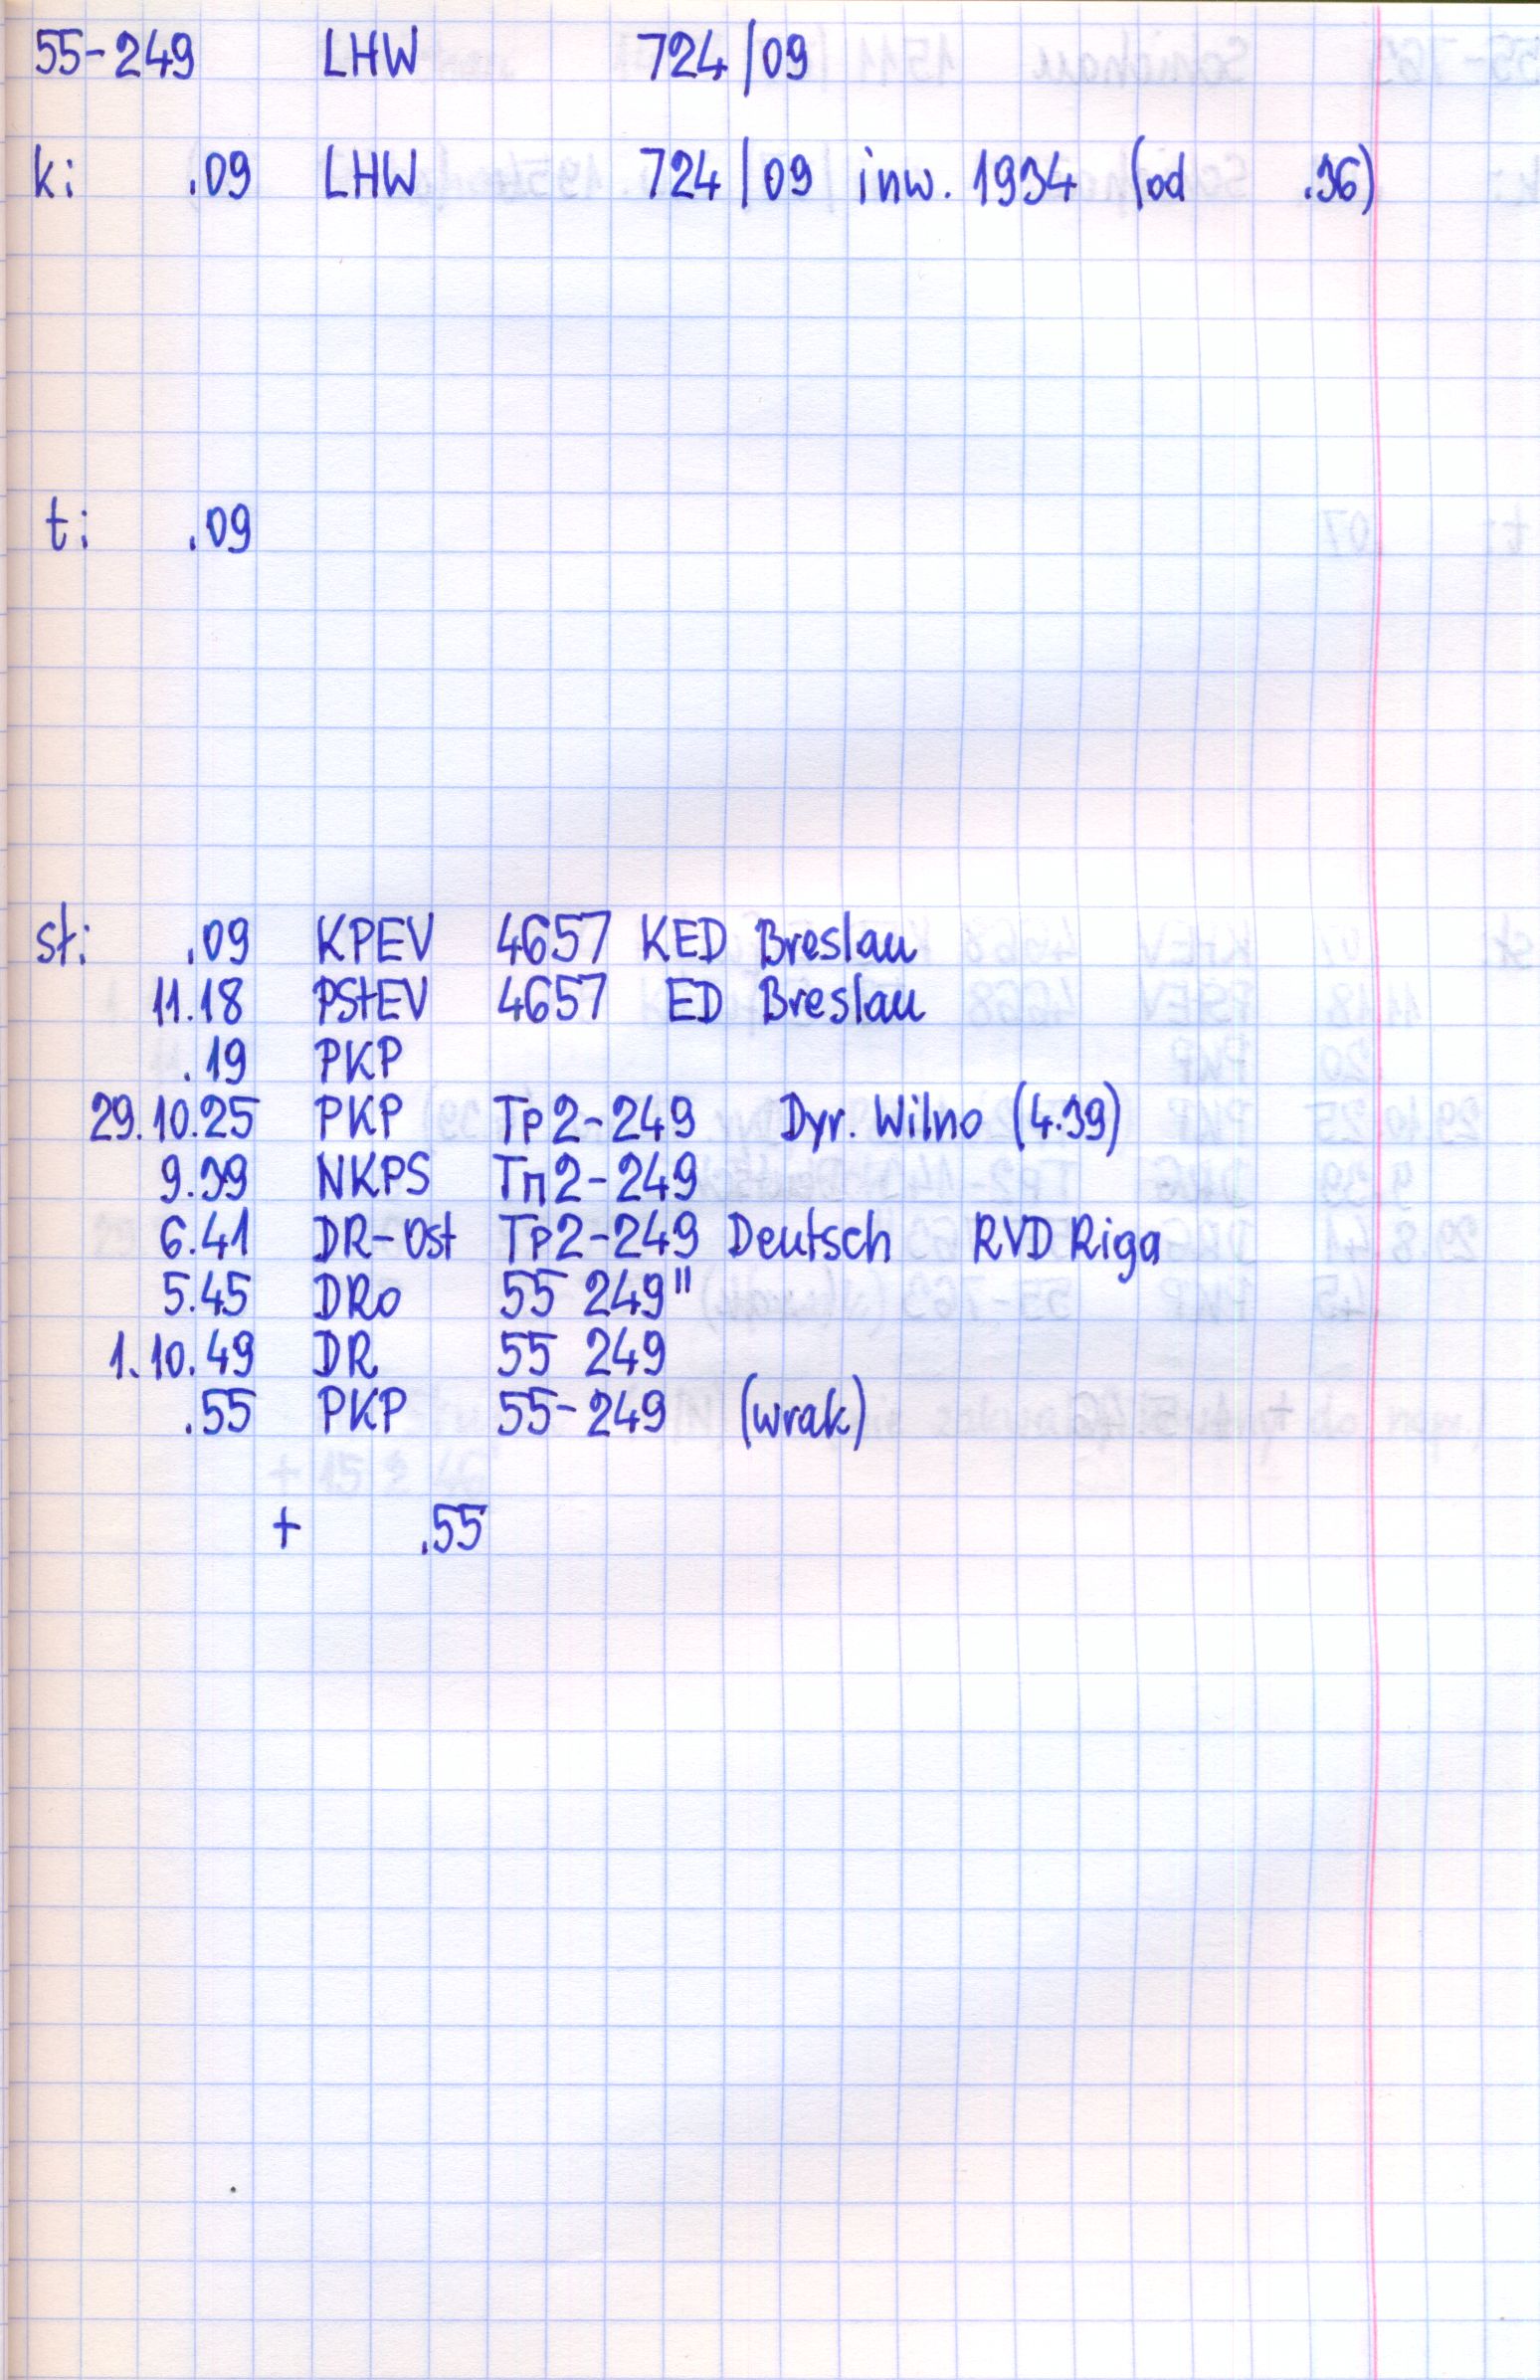 55-249 LHW 724/09
k: .09 LHW 724/09 inw. 1934 (od .36)
t: .09
st: .09 KPEV 4657 KED Breslau
11.18 PStEV 4657 ED Breslau
.19 PKP
29.10.25 PKP Tp2-249 Dyr. Wilno (4.39)
9.39 NKPS Тп2-249
6.41 DR-Ost Tp2-249 Deutsch RVD Riga
5.45 DRo 55 249"
1.10.49 DR 55 249
.55 PKP 55-249 (wrak)
+ .55